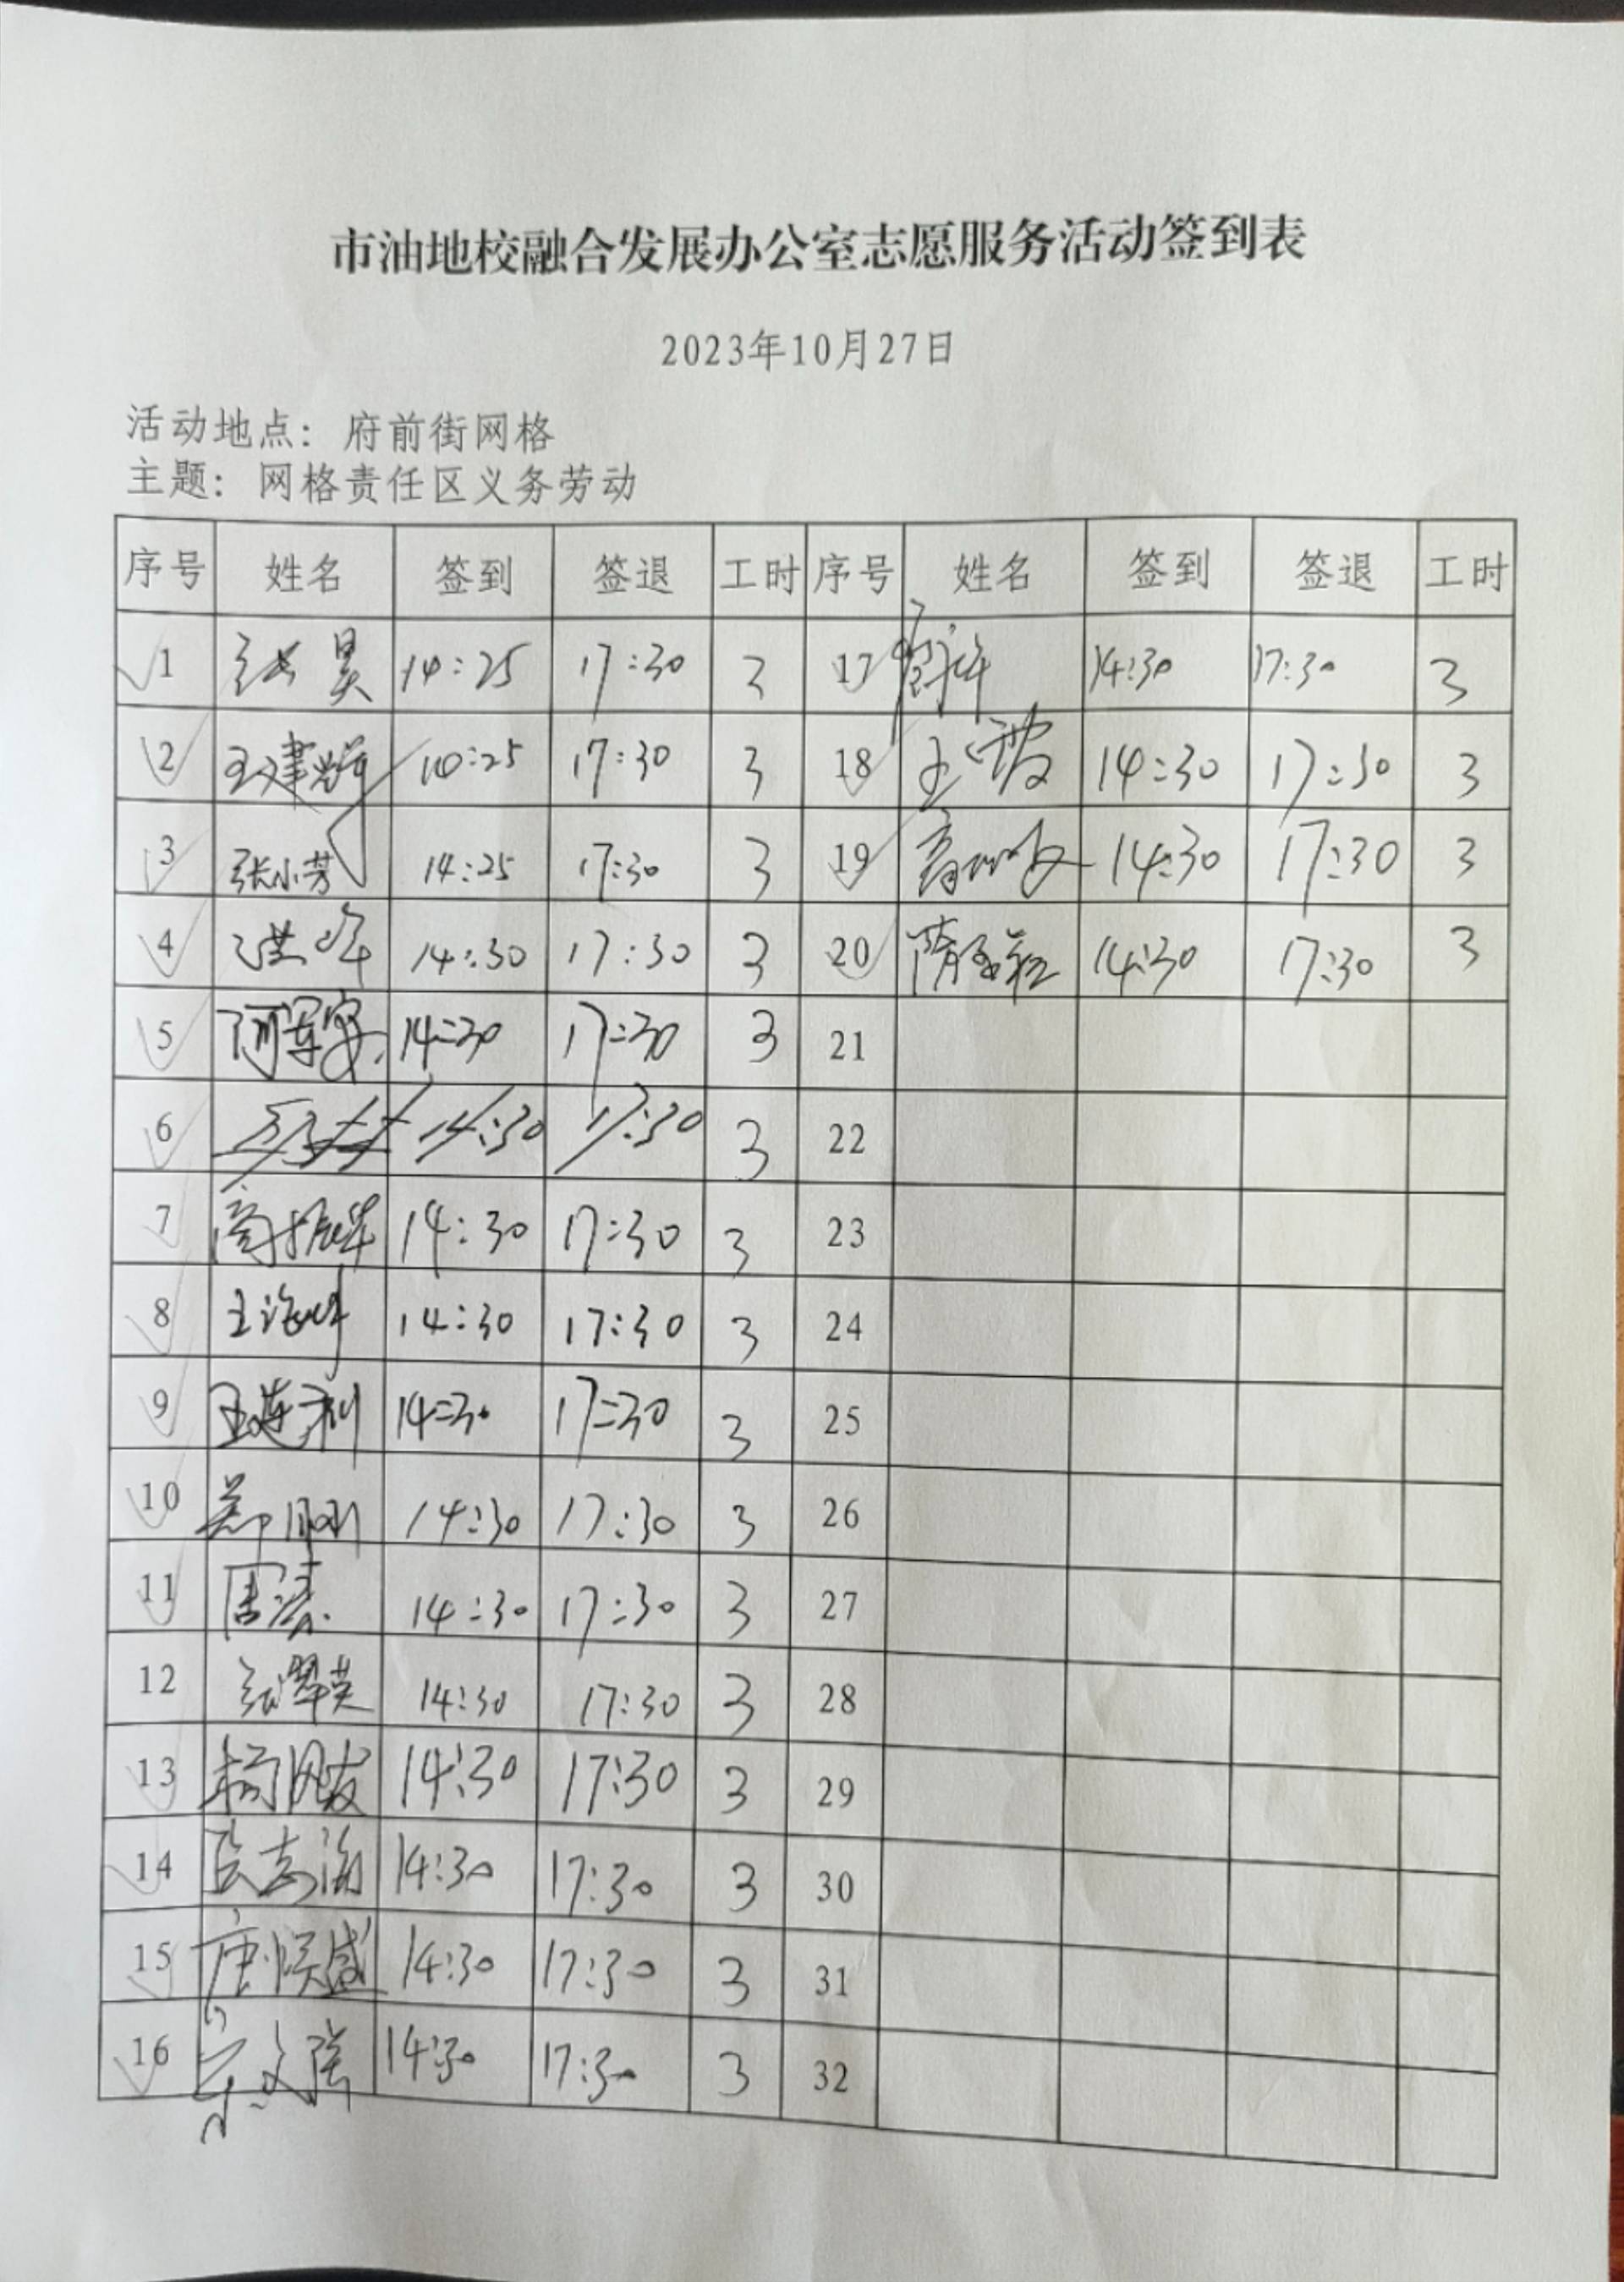 市油地校融合发展办公室志愿服务活动签到表
2023年10月27日
活动地点：府前街网格
主题：网格责任区义务劳动
序号 姓名 签到 签退 工时 序号 姓名 签到 签退 工时
1 张昊 14:25 17:30 3 17 14:30 17:30 3
2 王建辉 10:25 17:30 3 18 王波 14:30 17:30 3
3 张小芳 14:25 17:30 3 19 14:30 17:30 3
4 14:30 17:30 3 20 14:30 17:30 3
5 14:30 17:30 3 21
6 14:30 17:30 3 22
7 商振华 14:30 17:30 3 23
8 王海 14:30 17:30 3 24
9 王连利 14:30 17:30 3 25
10 郑 14:30 17:30 3 26
11 周涛 14:30 17:30 3 27
12 张翠英 14:30 17:30 3 28
13 杨 14:30 17:30 3 29
14 志海 14:30 17:30 3 30
15 唐 盛 14:30 17:30 3 31
16 文强 14:30 17:30 3 32